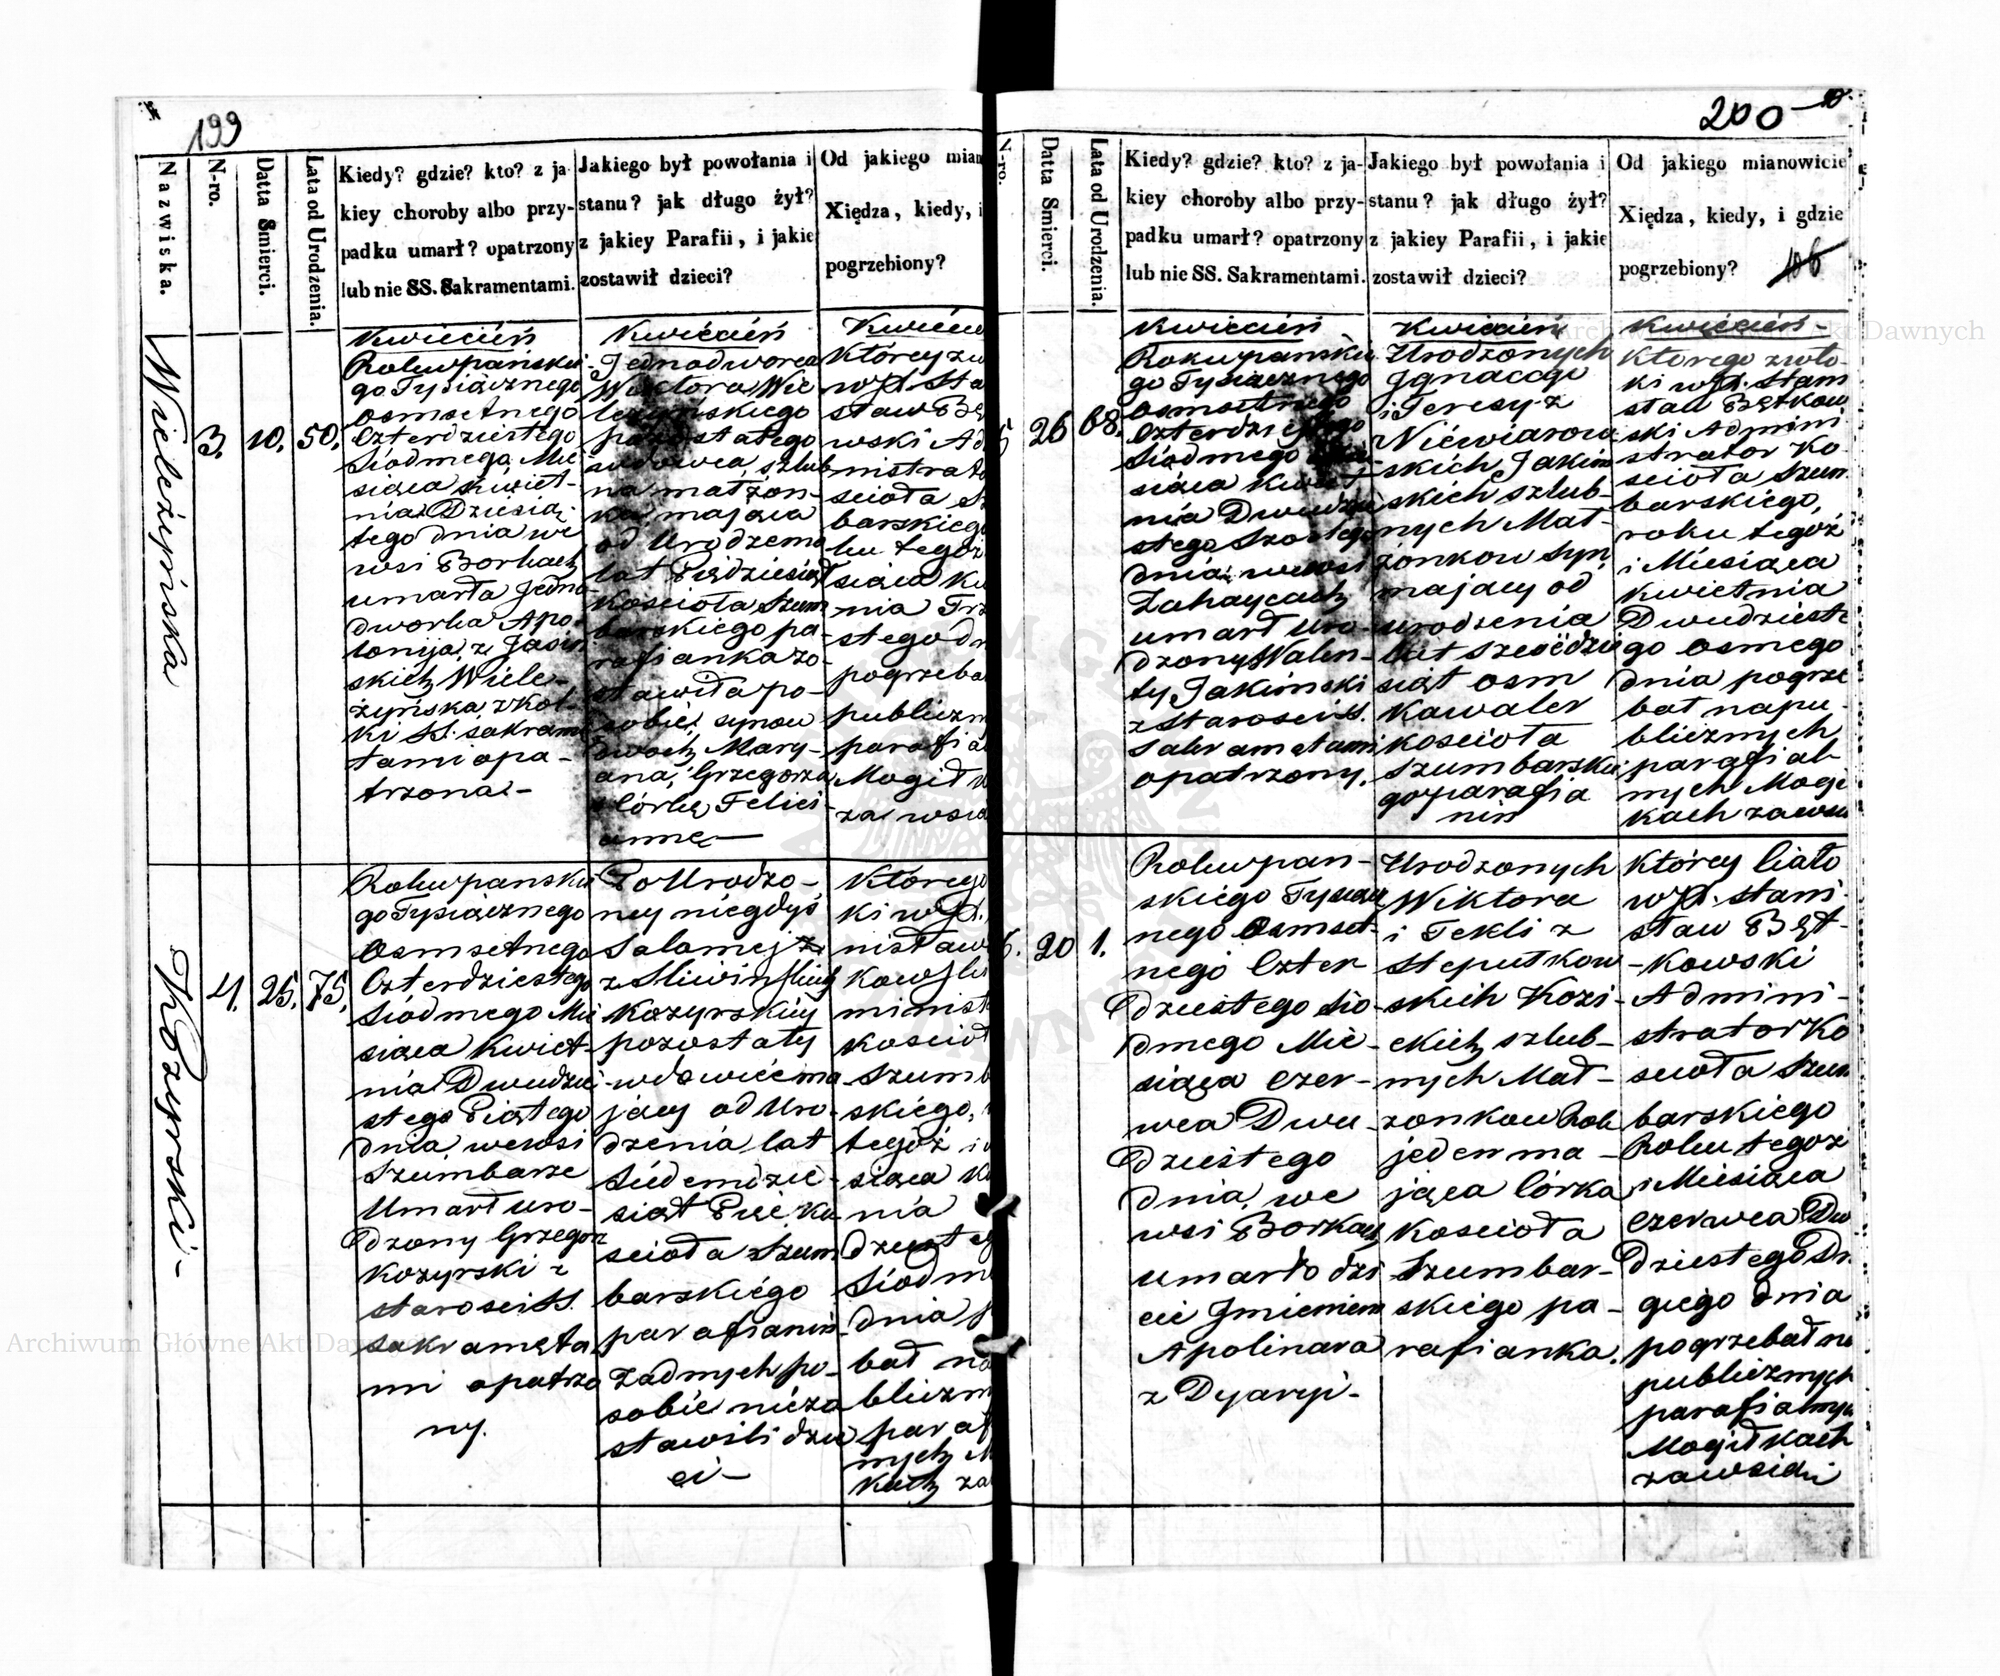 199
Nazwiska.
N-ro.
Datta Smierci.
Lata od Urodzenia.
Kiedy? gdzie? kto? z ja-
kiey choroby albo przy-
padku umarł? opatrzony
lub nie SS. Sakramentami.
Jakiego był powołania i
stanu? jak długo żył?
z jakiey Parafii, i jakie
zostawił dzieci?
Od jakiego mian
Xiędza, kiedy, i
pogrzebiony?
Wieleżyńska
3.
10.
50.
Kwiecień
Roku pańskie-
go Tysiącznego
osmsetnego
Czterdziestego
Siódmego Mie
siąca Kwiet-
nia Dziesią-
tego dnia we
wsi Borkach
umarła Jedno-
dworka Apo-
lonija z Jasiń
skich Wiele-
żyńska
ki SS. sakramę
tami opa-
trzona-
Kwiecień
Jednodworca
Wiktora Wie
leżyńskiego
pozostałego
wdowca, szlub
na małżon-
ka, mająca
od Urodzenia
lat Pięcdziesiąt
Kościoła Szum
barskiego pa-
rafianka zo-
stawiła po-
sobie, synow
dwoch Mary-
ana, Grzegorza
Córkę Felici-
annę
Kwiecie
Którey zw
wJX. Sta
sław Bę
wski Ad
nistrato
scioła S
barskieg
ku tegoż
siąca Kw
nia Trz
stego dn
pogrzeba
publiczn
parafia
Mogiłk
za wsią
Kozyrski-
4.
25.
75.
Roku panskie
go Tysiącznego
Osmsetnego
Czterdziestego
Siódmego Mie
siąca Kwiet-
nia Dwudzie
stego Piątego
dnia, wewsi
Szumbarze
Umarł uro-
dzony Grzegorz
Kozyrski z
starosci SS.
Sakramęta
mi opatrzo
ny.
Po Urodzo-
ney niegdyś
Salomei
z Sliwinskich
Kozyrskiey
pozostały
wdowiec ma
jący od Uro-
dzenia lat
Siedemdzie-
siąt Pięć Ko
scioła Szum
barskiego
parafianin
żadnych po-
sobie nieza
stawili dzie
ci-
Którego
ki wJX.
nisław
Kowski
minist
Koscioł
Szumb
skiego,
tegoż i
siąca Kw
nia
dzieste
Siódm
dnia
bał na
bliczn
paraf
nych M
kach za
200
N-ro.
Data Smierci.
Lata od Urodzenia.
Kiedy? gdzie? kto? z ja-
kiey choroby albo przy-
padku umarł? opatrzony
lub nie SS. Sakramentami.
Jakiego był powołania i
stanu? jak długo żył?
z jakiey Parafii, i jakie
zostawił dzieci?
Od jakiego mianowicie
Xiędza, kiedy, i gdzie
pogrzebiony?
106
5
26
68.
Kwiecień
Roku panskie
go Tysiącznego
Osmsetnego
Czterdziestego
Siódmego
siąca Kwiet
nia Dwudzie
stego Szostego
dnia, wewsi
Zahaycach
umarł Uro-
dzony Walen-
ty Jakimski
z Starosci SS.
Sakramętami
opatrzony.
Kwiecień
Urodzonych
Ignacego
i Teresy z
Niewiarow
skich Jakim
skich szlub-
nych Mał-
żonkow syn,
mający od
urodzenia
lat szesćdzie
siąt osm
Kawaler
kościoła
Szumbarskie
go parafia
nin
Kwiecień
Ktorego zwło-
ki wJX. Stani
sław Bętkow
ski Admini
strator Ko-
scioła Szum
barskiego,
roku tegoż
i Miesiąca
Kwietnia
Dwudzieste
go osmego
dnia pogrze
bał na pu-
blicznych
parafial-
nych Mogił
kach za wsią
6.
20
1.
Roku pan-
skiego Tysiącz
nego Osmset-
nego Czter
dziestego Sio-
dmego Mie-
siąca Czer-
wca Dwu-
dziestego
dnia, we
wsi Borkach
umarło dzi
cie Imieniem
Apolinara
z Dyaryi-
Urodzonych
Wiktora
i Tekli z
Steputkow
skich Kozi-
ckich szlub-
nych Mał-
żonkow Rok
jeden ma-
jąca Córka
Kościoła
Szumbar-
skiego pa-
rafianka.
Którey Ciało
wJX. Stani-
sław Bęt-
kowski
Admini-
strator Ko
scioła Szum
barskiego
Roku tegoż
i Miesiąca
Czerwca Dw
dziestego Dr
giego dnia
pogrzebał na
publicznych
parafialnych
Mogiłkach
za wsią
Archiwum Główne Akt Dawnych
Archiwum Główne Akt Dawnych